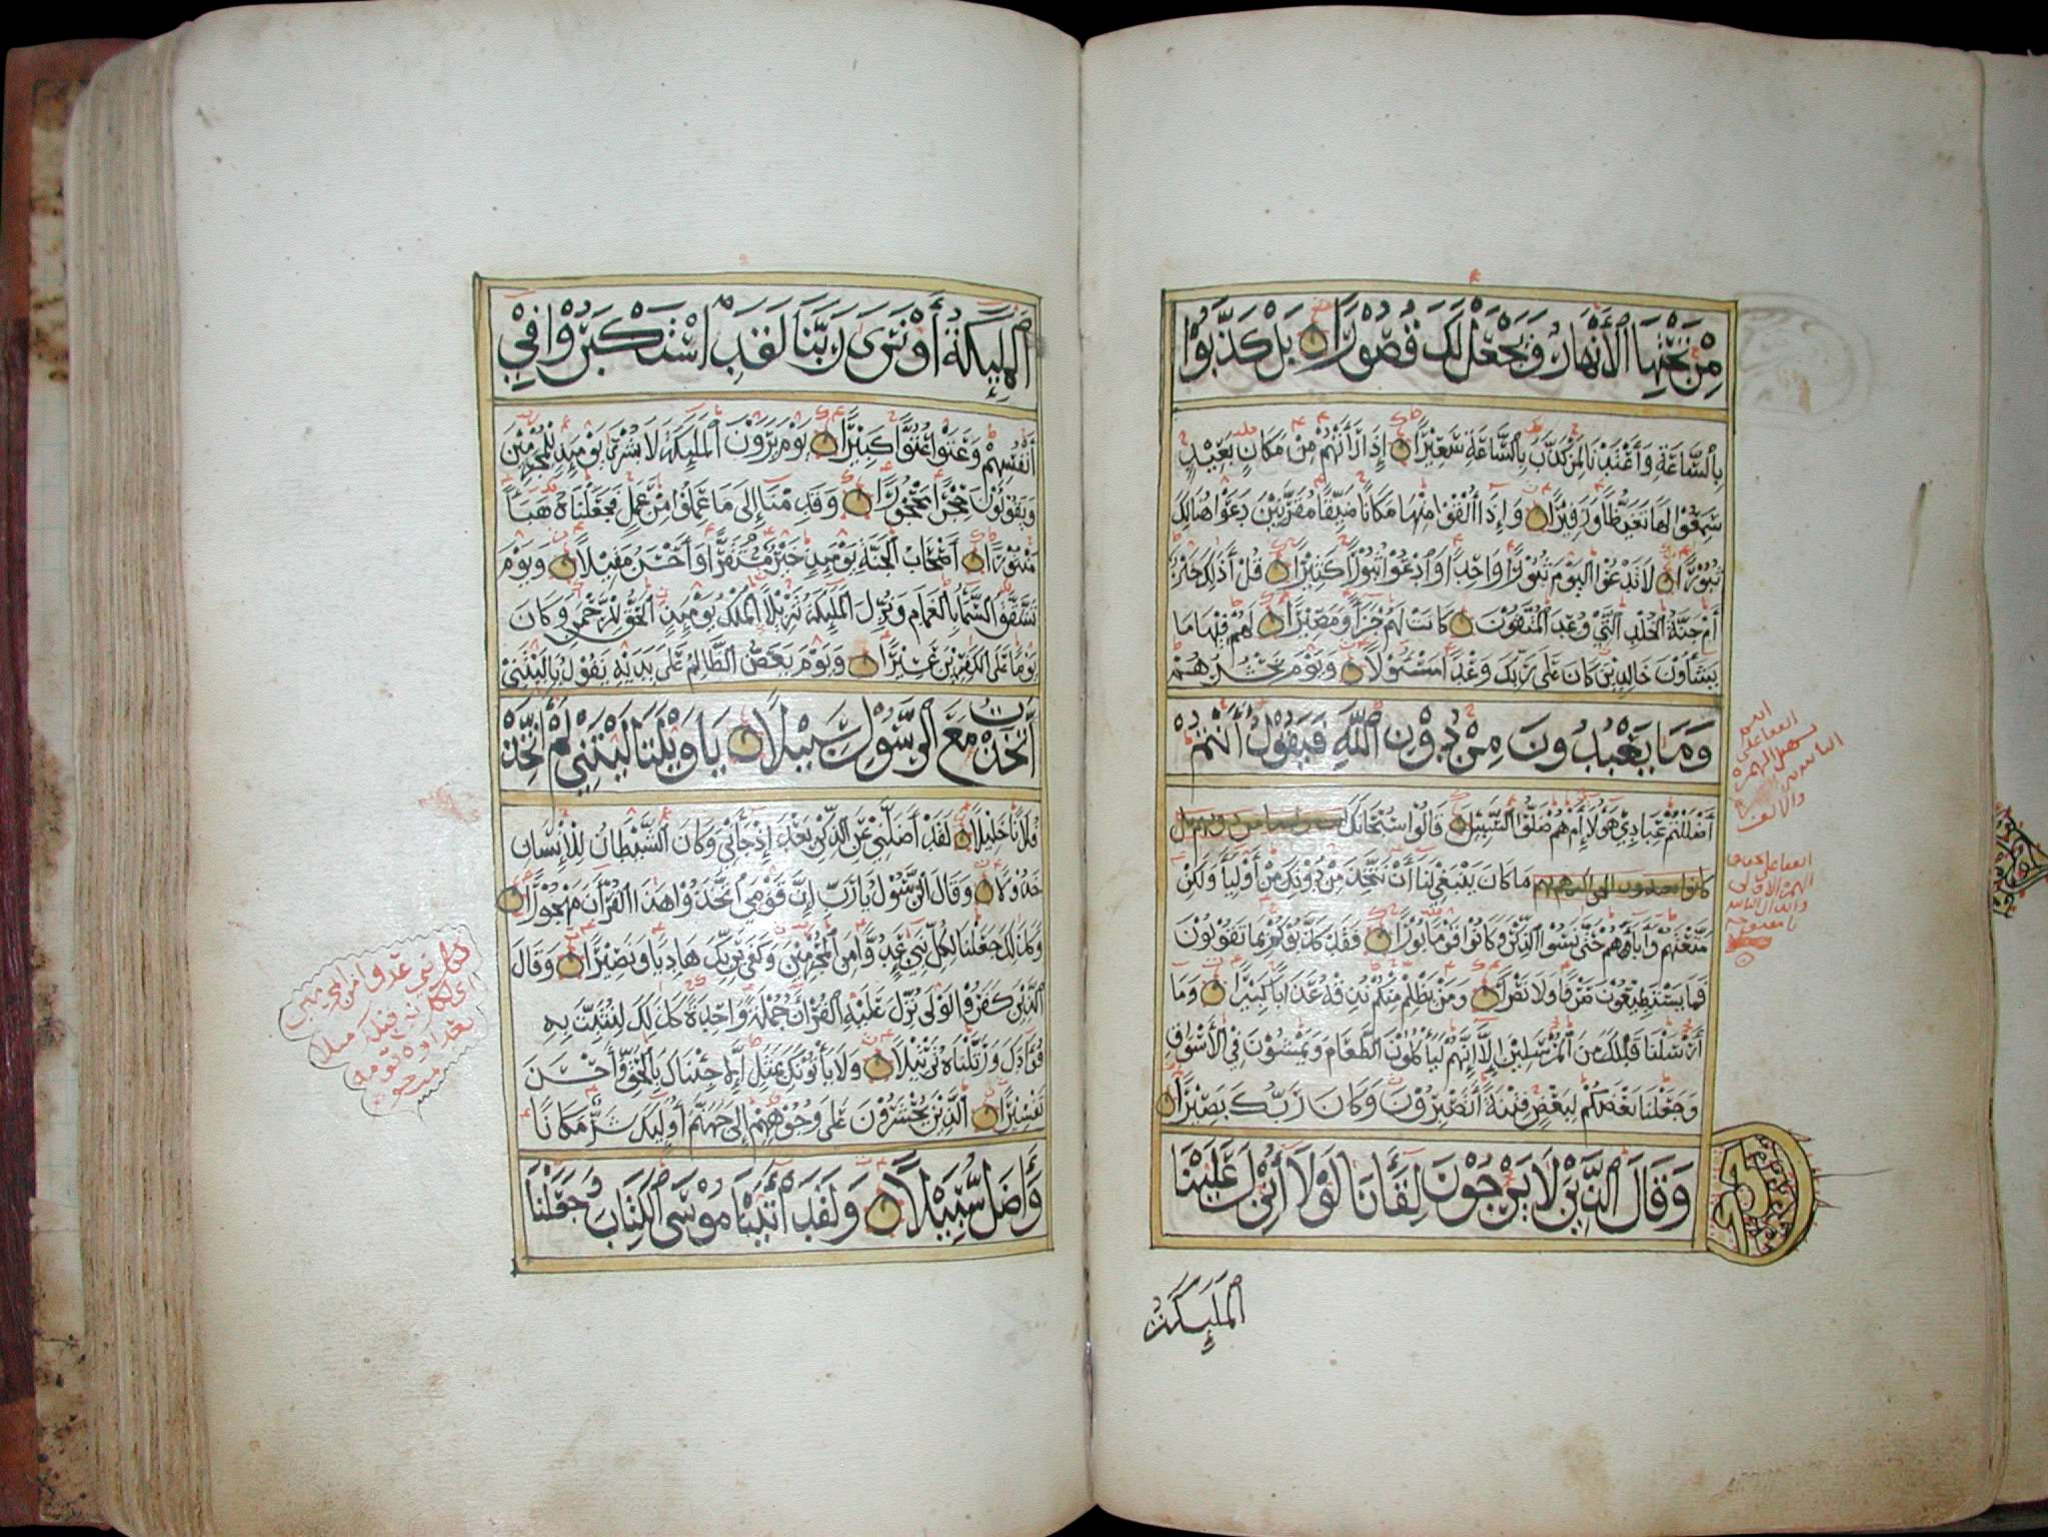 مِنْ تَحْتِهَا ٱلْأَنْهَارُ وَيَجْعَلْ لَكَ قُصُوْرًا بَلْ كَذَّبُوْا
بِٱلسَّاعَةِ وَأَعْتَدْنَا لِمَنْ كَذَّبَ بِٱلسَّاعَةِ سَعِيْرًا إِذَا رَأَتْهُمْ مِنْ مَكَانٍ بَعِيْدٍ
سَمِعُوْا لَهَا تَغَيُّظًا وَزَفِيْرًا وَإِذَا أُلْقُوْا مِنْهَا مَكَانًا ضَيِّقًا مُقَرَّنِيْنَ دَعَوْا هُنَالِكَ
ثُبُوْرًا لَا تَدْعُوْا الْيَوْمَ ثُبُوْرًا وَاحِدًا وَادْعُوْا ثُبُوْرًا كَثِيْرًا قُلْ أَذَلِكَ خَيْرٌ
أَمْ جَنَّةُ الْخُلْدِ الَّتِيْ وُعِدَ الْمُتَّقُوْنَ كَانَتْ لَهُمْ جَزَآءً وَمَصِيْرًا لَهُمْ فِيْهَا مَا
يَشَآؤُنَ خَالِدِيْنَ كَانَ عَلَى رَبِّكَ وَعْدًا مَسْئُوْلًا وَيَوْمَ نَحْشُرُهُمْ
وَمَا يَعْبُدُونَ مِنْ دُوْنِ ٱللَّهِ فَيَقُوْلُ أَأَنْتُمْ
أَضْلَلْتُمْ عِبَادِيْ هَؤُلَآءِ أَمْ هُمْ ضَلُّوْا السَّبِيْلَ قَالُوْا سُبْحَانَكَ
مَا كَانَ يَنْبَغِيْ لَنَا أَنْ نَتَّخِذَ مِنْ دُوْنِكَ مِنْ أَوْلِيَآءَ وَلَكِنْ
مَتَّعْتَهُمْ وَآبَآءَهُمْ حَتَّى نَسُوْا الذِّكْرَ وَكَانُوْا قَوْمًا بُوْرًا فَقَدْ كَذَّبُوْكُمْ بِمَا تَقُوْلُوْنَ
فَمَا يَسْتَطِيْعُوْنَ صَرْفًا وَلَا نَصْرًا وَمَنْ يَظْلِمْ مِنْكُمْ نُذِقْهُ عَذَابًا كَبِيْرًا وَمَا
أَرْسَلْنَا قَبْلَكَ مِنَ الْمُرْسَلِيْنَ إِلَّا إِنَّهُمْ لَيَأْكُلُوْنَ الطَّعَامَ وَيَمْشُوْنَ فِيْ الْأَسْوَاقِ
وَجَعَلْنَا بَعْضَكُمْ لِبَعْضٍ فِتْنَةً أَتَصْبِرُوْنَ وَكَانَ رَبُّكَ بَصِيْرًا
وَقَالَ الَّذِيْنَ لَا يَرْجُوْنَ لِقَآءَنَا لَوْلَا أُنْزِلَ عَلَيْنَا
ٱلْمَلَٰٓئِكَةُ
ٱلْمَلَٰٓئِكَةُ أَوْ نَرَى رَبَّنَا لَقَدِ اسْتَكْبَرُوْا فِيْ
أَنْفُسِهِمْ وَعَتَوْا عُتُوًّا كَبِيْرًا يَوْمَ يَرَوْنَ الْمَلَٰٓئِكَةَ لَا بُشْرَى يَوْمَئِذٍ لِلْمُجْرِمِيْنَ
وَيَقُوْلُوْنَ حِجْرًا مَحْجُوْرًا وَقَدِمْنَا إِلَى مَا عَمِلُوْا مِنْ عَمَلٍ فَجَعَلْنَاهُ هَبَآءً
مَنْثُوْرًا أَصْحَابُ الْجَنَّةِ يَوْمَئِذٍ خَيْرٌ مُسْتَقَرًّا وَأَحْسَنُ مَقِيْلًا وَيَوْمَ
تَشَقَّقُ السَّمَآءُ بِالْغَمَامِ وَنُزِّلَ الْمَلَٰٓئِكَةُ تَنْزِيْلًا الْمُلْكُ يَوْمَئِذٍ الْحَقُّ لِلرَّحْمَنِ وَكَانَ
يَوْمًا عَلَى الْكَافِرِيْنَ عَسِيْرًا وَيَوْمَ يَعَضُّ الظَّالِمُ عَلَى يَدَيْهِ يَقُوْلُ يَا لَيْتَنِيْ
اتَّخَذْتُ مَعَ الرَّسُوْلِ سَبِيْلًا يَا وَيْلَتَا لَيْتَنِيْ لَمْ أَتَّخِذْ
فُلَانًا خَلِيْلًا لَقَدْ أَضَلَّنِيْ عَنِ الذِّكْرِ بَعْدَ إِذْ جَآءَنِيْ وَكَانَ الشَّيْطَانُ لِلْإِنْسَانِ
خَذُوْلًا وَقَالَ الرَّسُوْلُ يَا رَبِّ إِنَّ قَوْمِيْ اتَّخَذُوْا هَذَا الْقُرْآنَ مَهْجُوْرًا
وَكَذَلِكَ جَعَلْنَا لِكُلِّ نَبِيٍّ عَدُوًّا مِنَ الْمُجْرِمِيْنَ وَكَفَى بِرَبِّكَ هَادِيًا وَنَصِيْرًا وَقَالَ
الَّذِيْنَ كَفَرُوْا لَوْلَا نُزِّلَ عَلَيْهِ الْقُرْآنُ جُمْلَةً وَاحِدَةً كَذَلِكَ لِنُثَبِّتَ بِهِ
فُؤَادَكَ وَرَتَّلْنَاهُ تَرْتِيْلًا وَلَا يَأْتُوْنَكَ بِمَثَلٍ إِلَّا جِئْنَاكَ بِالْحَقِّ وَأَحْسَنَ
تَفْسِيْرًا الَّذِيْنَ يُحْشَرُوْنَ عَلَى وُجُوْهِهِمْ إِلَى جَهَنَّمَ أُوْلَئِكَ شَرٌّ مَكَانًا
وَأَضَلُّ سَبِيْلًا وَلَقَدْ أَتَيْنَا مُوْسَى الْكِتَابَ وَجَعَلْنَا